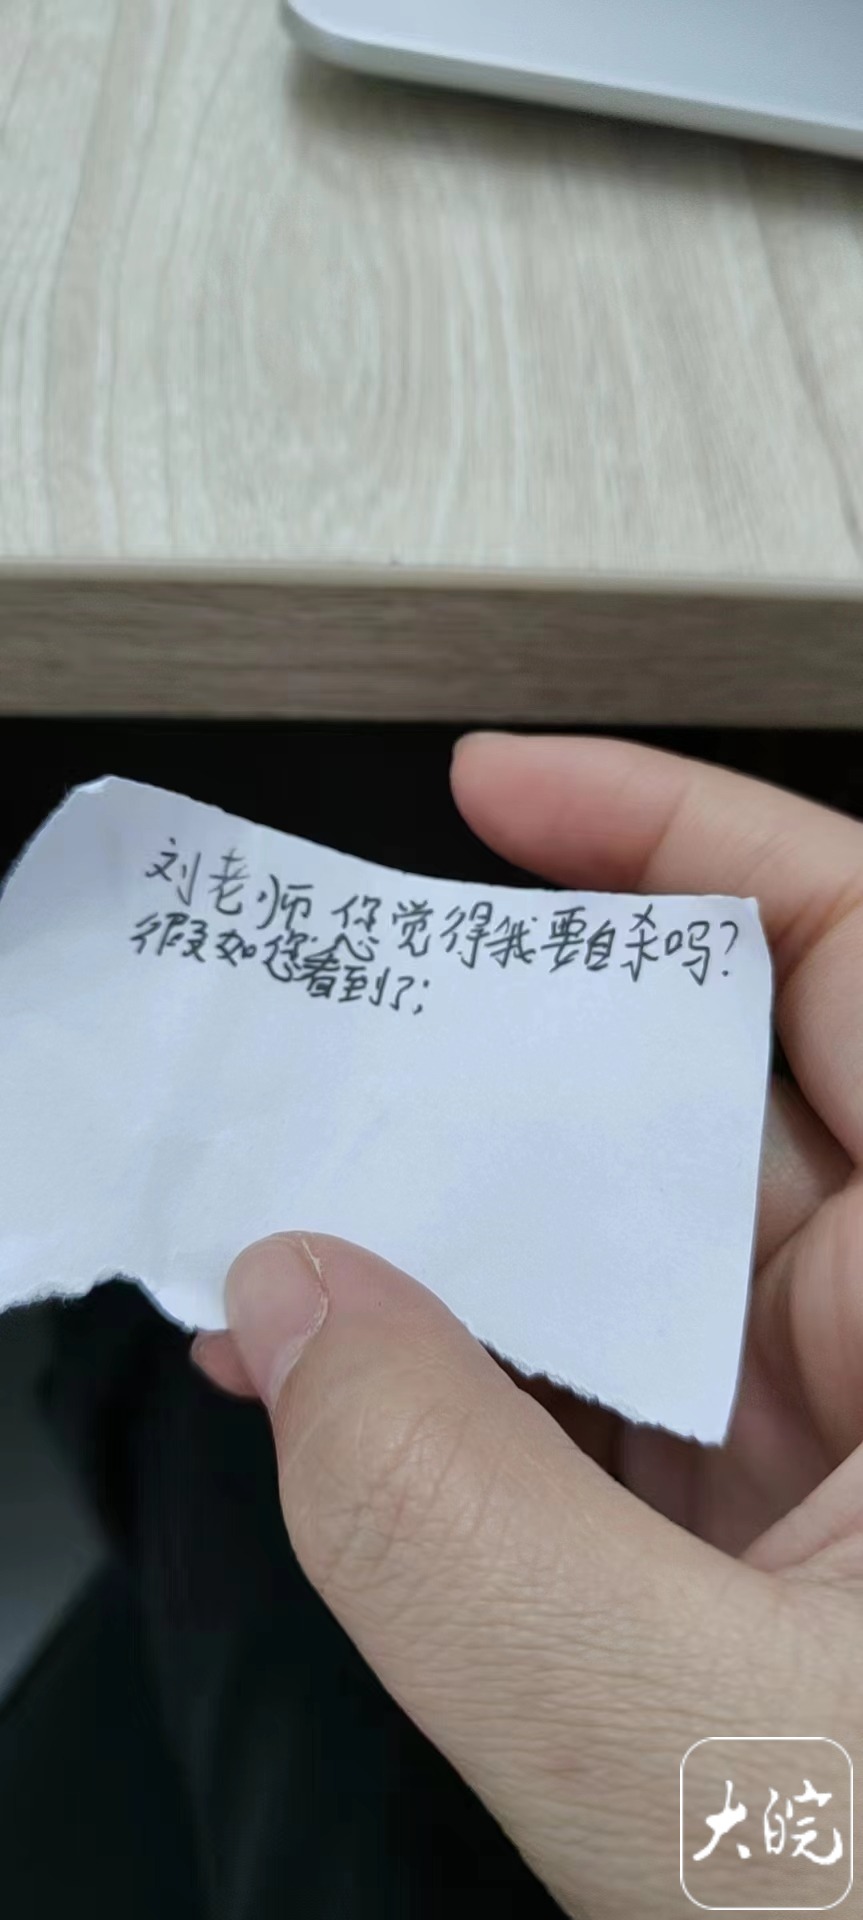 刘老师 您觉得我要自杀吗?
假如您看到了;
大皖